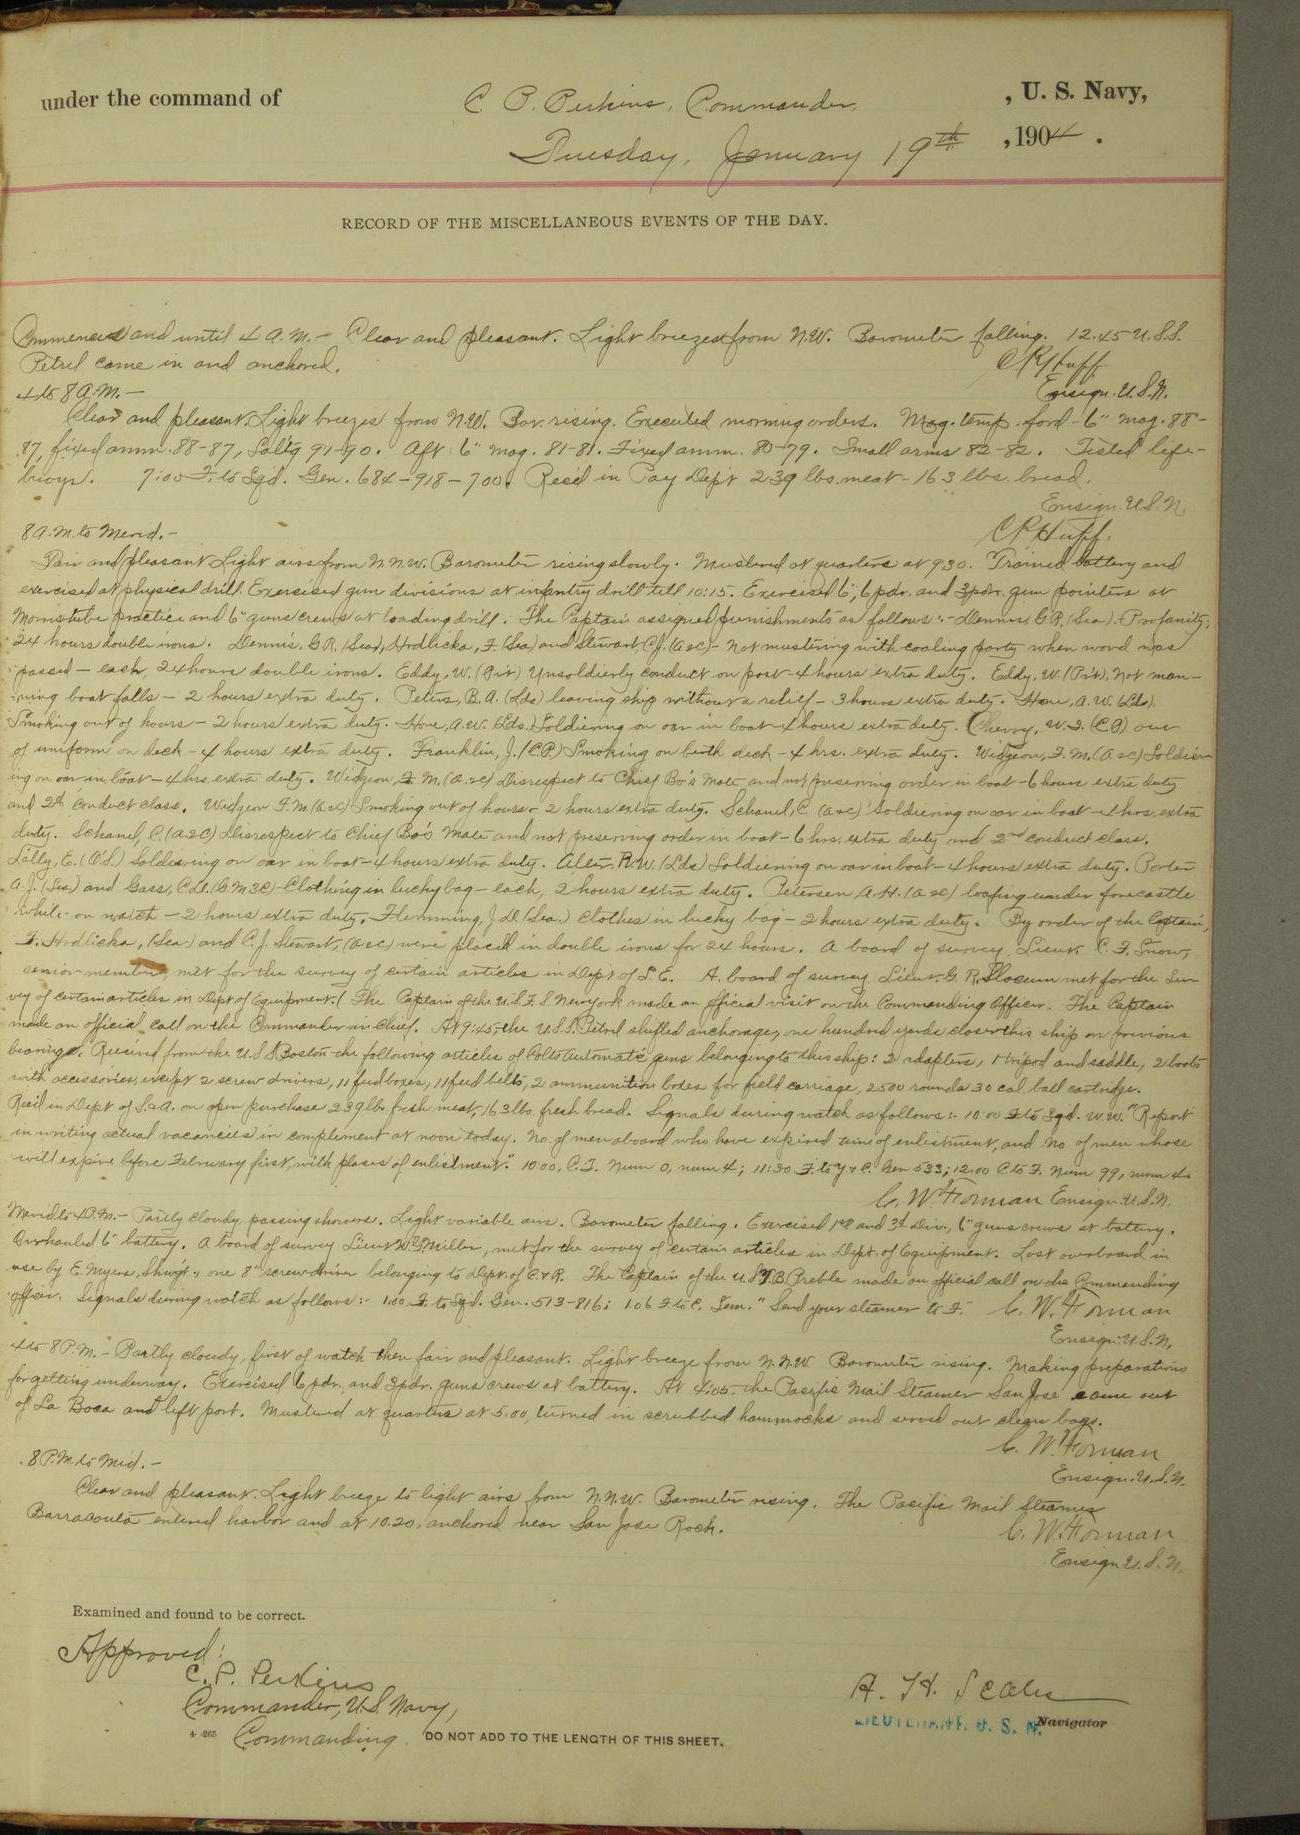 under the command of C. P. Perkins, Commander, , U. S. Navy,
Tuesday, January 19th , 1904 .
RECORD OF THE MISCELLANEOUS EVENTS OF THE DAY.
Commenced and until 4 A.M. - Clear and pleasant. Light breezes from N.W. Barometer falling. 12.45 U.S.S.
Petrel came in and anchored. C R Huff,
4 to 8 A.M. - Ensign. U.S.N.
Clear and pleasant. Light breezes from N.W. Bar. rising. Executed morning orders. Mag. temp. ford - 6" mag. 88-
87, fixed amm. 88-87, Sal'tg 91-90. Aft: 6" mag. 81-81. Fixed amm. 80-79. Small arms 82-82. Tested life-
buoys. 7:00 F. to Sqd. Gen. 684-918-700. Rec'd in Pay Dep't 239 lbs. meat - 163 lbs. bread.
Ensign U.S.N.
8 A.M. to Merid. - C R Huff.
Fair and pleasant. Light airs from N.N.W. Barometer rising slowly. Mustered at quarters at 9.30. Trained battery and
exercised at physical drill. Exercised gun divisions at infantry drill till 10:15. Exercised 6", 6 pdr. and 3 pdr. gun pointers at
Morris tube practice and 6" guns crews at loading drill. The Captain assigned punishments as follows:- Dennis, G.R. (Sea). Profanity;
24 hours double irons. Dennis, G.R. (Sea), Hrdlicka, F. (Sea) and Stewart, C.J. (A2C) - Not mustering with coaling party when word was
passed - each, 24 hours double irons. Eddy, W. (Pvt) Unsoldierly conduct on post - 4 hours extra duty. Eddy, W. (Pvt), Not man-
ning boat falls - 2 hours extra duty. Peters, B.A. (Lds) leaving ship without a relief - 3 hours extra duty. Hone, A.W. (Lds),
Smoking out of hours - 2 hours extra duty. Hone, A.W. (Lds.) Soldiering on oar in boat - 4 hours extra duty. Cherry, W.I. (CP) out
of uniform on deck - 4 hours extra duty. Franklin, J. (C.P.) Smoking on berth deck - 4 hrs. extra duty. Widgeon, F.M. (A2C) Soldier-
ing on oar in boat - 4 hrs. extra duty. Widgeon, F.M. (A.2C) Disrespect to Chief Bo's Mate and not preserving order in boat - 6 hours extra duty
and 2d conduct class. Widgeon F.M (A2C) Smoking out of hours - 2 hours extra duty. Schanel, C. (A2C) Soldiering on oar in boat - 4 hrs. extra
duty. Schanel, C. (A2C) Disrespect to Chief Bo's Mate and not preserving order in boat - 6 hrs. extra duty and 2nd conduct class.
Lally, E. (O.S.) Soldiering on oar in boat - 4 hours extra duty. Allen, R.W. (Lds) Soldiering on oar in boat - 4 hours extra duty. Porter
A.J. (Sea) and Gass, C.D. (G.M.3C) - Clothing in lucky bag - each, 2 hours extra duty. Petersen, A.H. (A2C) loafing under forecastle
while on watch - 2 hours extra duty. Flemming, J.D. (Sea.) Clothes in lucky bag - 2 hours extra duty. By order of the Captain,
F. Hrdlicka, (Sea) and C.J. Stewart, (A2C) were placed in double irons for 24 hours. A board of survey, Lieut. C.F. Snow,
senior member, met for the survey of certain articles in Dept of S.E. A. board of survey Lieut. G. R. Slocum met for the sur-
vey of certain articles in Dept. of Equipment. The Captain of the U.S.F.S. New York made an official visit on the Commanding Officer. The Captain
made an official call on the Commander in Chief. At 9:45 the U.S.S. Petrel shifted anchorage, one hundred yards closer this ship on previous
bearings. Received from the U.S.S Boston the following articles of Colts Automatic guns belonging to this ship: 2 adapters, 1 tripod and saddle, 2 boxes
with accessories, except 2 screw drivers, 11 feed boxes, 11 feed belts, 2 ammunition boxes for field carriage, 2500 rounds 30 cal. ball cartridge.
Rec'd in Dept of S.&A. on open purchase 239 lbs. fresh meat, 163 lbs. fresh bread. Signals during watch as follows:- 10:00 F to Sqd. W.W. "Report
in writing actual vacancies in complement at noon today. No. of men aboard who have expired time of enlistment, and no. of men whose
will expire before February first, with places of enlistment." 10:00, C.F. Num 0, num 4; 11:30 F. to Y & C. Gen 533; 12:00 C to F. Num 99, num 4.
C. W. Forman Ensign. U.S.N.
Merid. to 4 P.M. - Partly cloudy, passing showers. Light variable airs. Barometer falling. Exercised 1st and 3d Div., 6" guns crews at battery.
Overhauled 6" battery. A board of survey Lieut W.G. Miller, met for the survey of certain articles in Dept. of Equipment. Lost overboard in
use by E. Myers, Shwgt., one 8" screwdriver belonging to Dept. of C & R. The Captain of the U.S.T.B. Preble made an official call on the Commanding
officer. Signals during watch as follows:- 1:00 F. to Sqd. Gen. 513-816; 1.06 F to C. Sem. "Send your steamer to F." C. W. Forman
Ensign. U.S.N.
4 to 8 P.M. - Partly cloudy, first of watch then fair and pleasant. Light breeze from N.N.W. Barometer rising. Making preparations
for getting underway. Exercised 6 pdr. and 3 pdr. guns crews at battery. At 4:05 the Pacific Mail Steamer San Jose came out
of La Boca and left port. Mustered at quarters at 5.00, turned in scrubbed hammocks and served out clean bags.
C. W. Forman
8 P.M. to Mid. - Ensign. U.S.N.
Clear and pleasant. Light breeze to light airs from N.N.W. Barometer rising. The Pacific Mail Steamer
Barracouta entered harbor and at 10.20, anchored near San Jose Rock. C. W. Forman
Ensign U.S.N.
Examined and found to be correct.
Approved:
C. P. Perkins
Commander, U.S. Navy,
Commanding
A. H. Scales
LIEUTENANT. U. S. N. Navigator
4-265 DO NOT ADD TO THE LENGTH OF THIS SHEET.